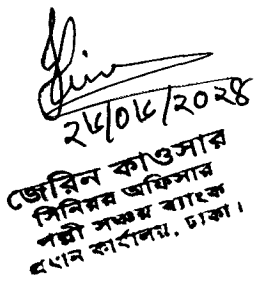 ২৮/০৮/২০২৪
জেরিন কাওসার
সিনিয়র অফিসার
পল্লী সঞ্চয় ব্যাংক
প্রধান কার্যালয়, ঢাকা।